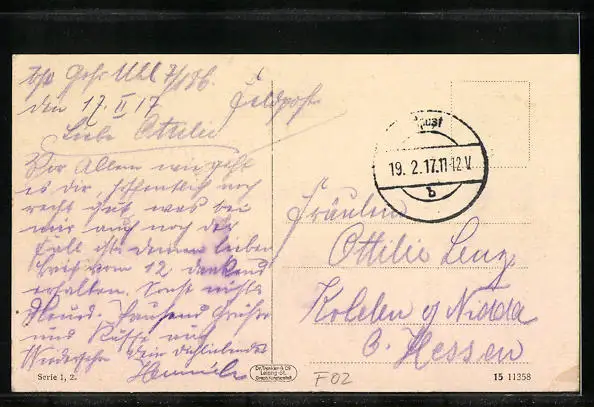 den 17. II 17
Feldpost
Liebe Ottilie
Vor Allem wie geht
es dir, hoffentlich noch
recht gut was bei
mir auch noch der
Fall ist. deinen lieben
Brief vom 12 dankend
erhalten. Sonst nichts
Neues. Tausend Grüße
und Küsse auf
Wiedersehn dein dichliebender
Heinrich
post
19. 2. 17. 11-12 V.
b
Fräulein
Ottilie Lenz
Nidda
Hessen
Serie 1, 2.
Dr. Trenkler & Co
Leipzig-St.
F02
15 11358